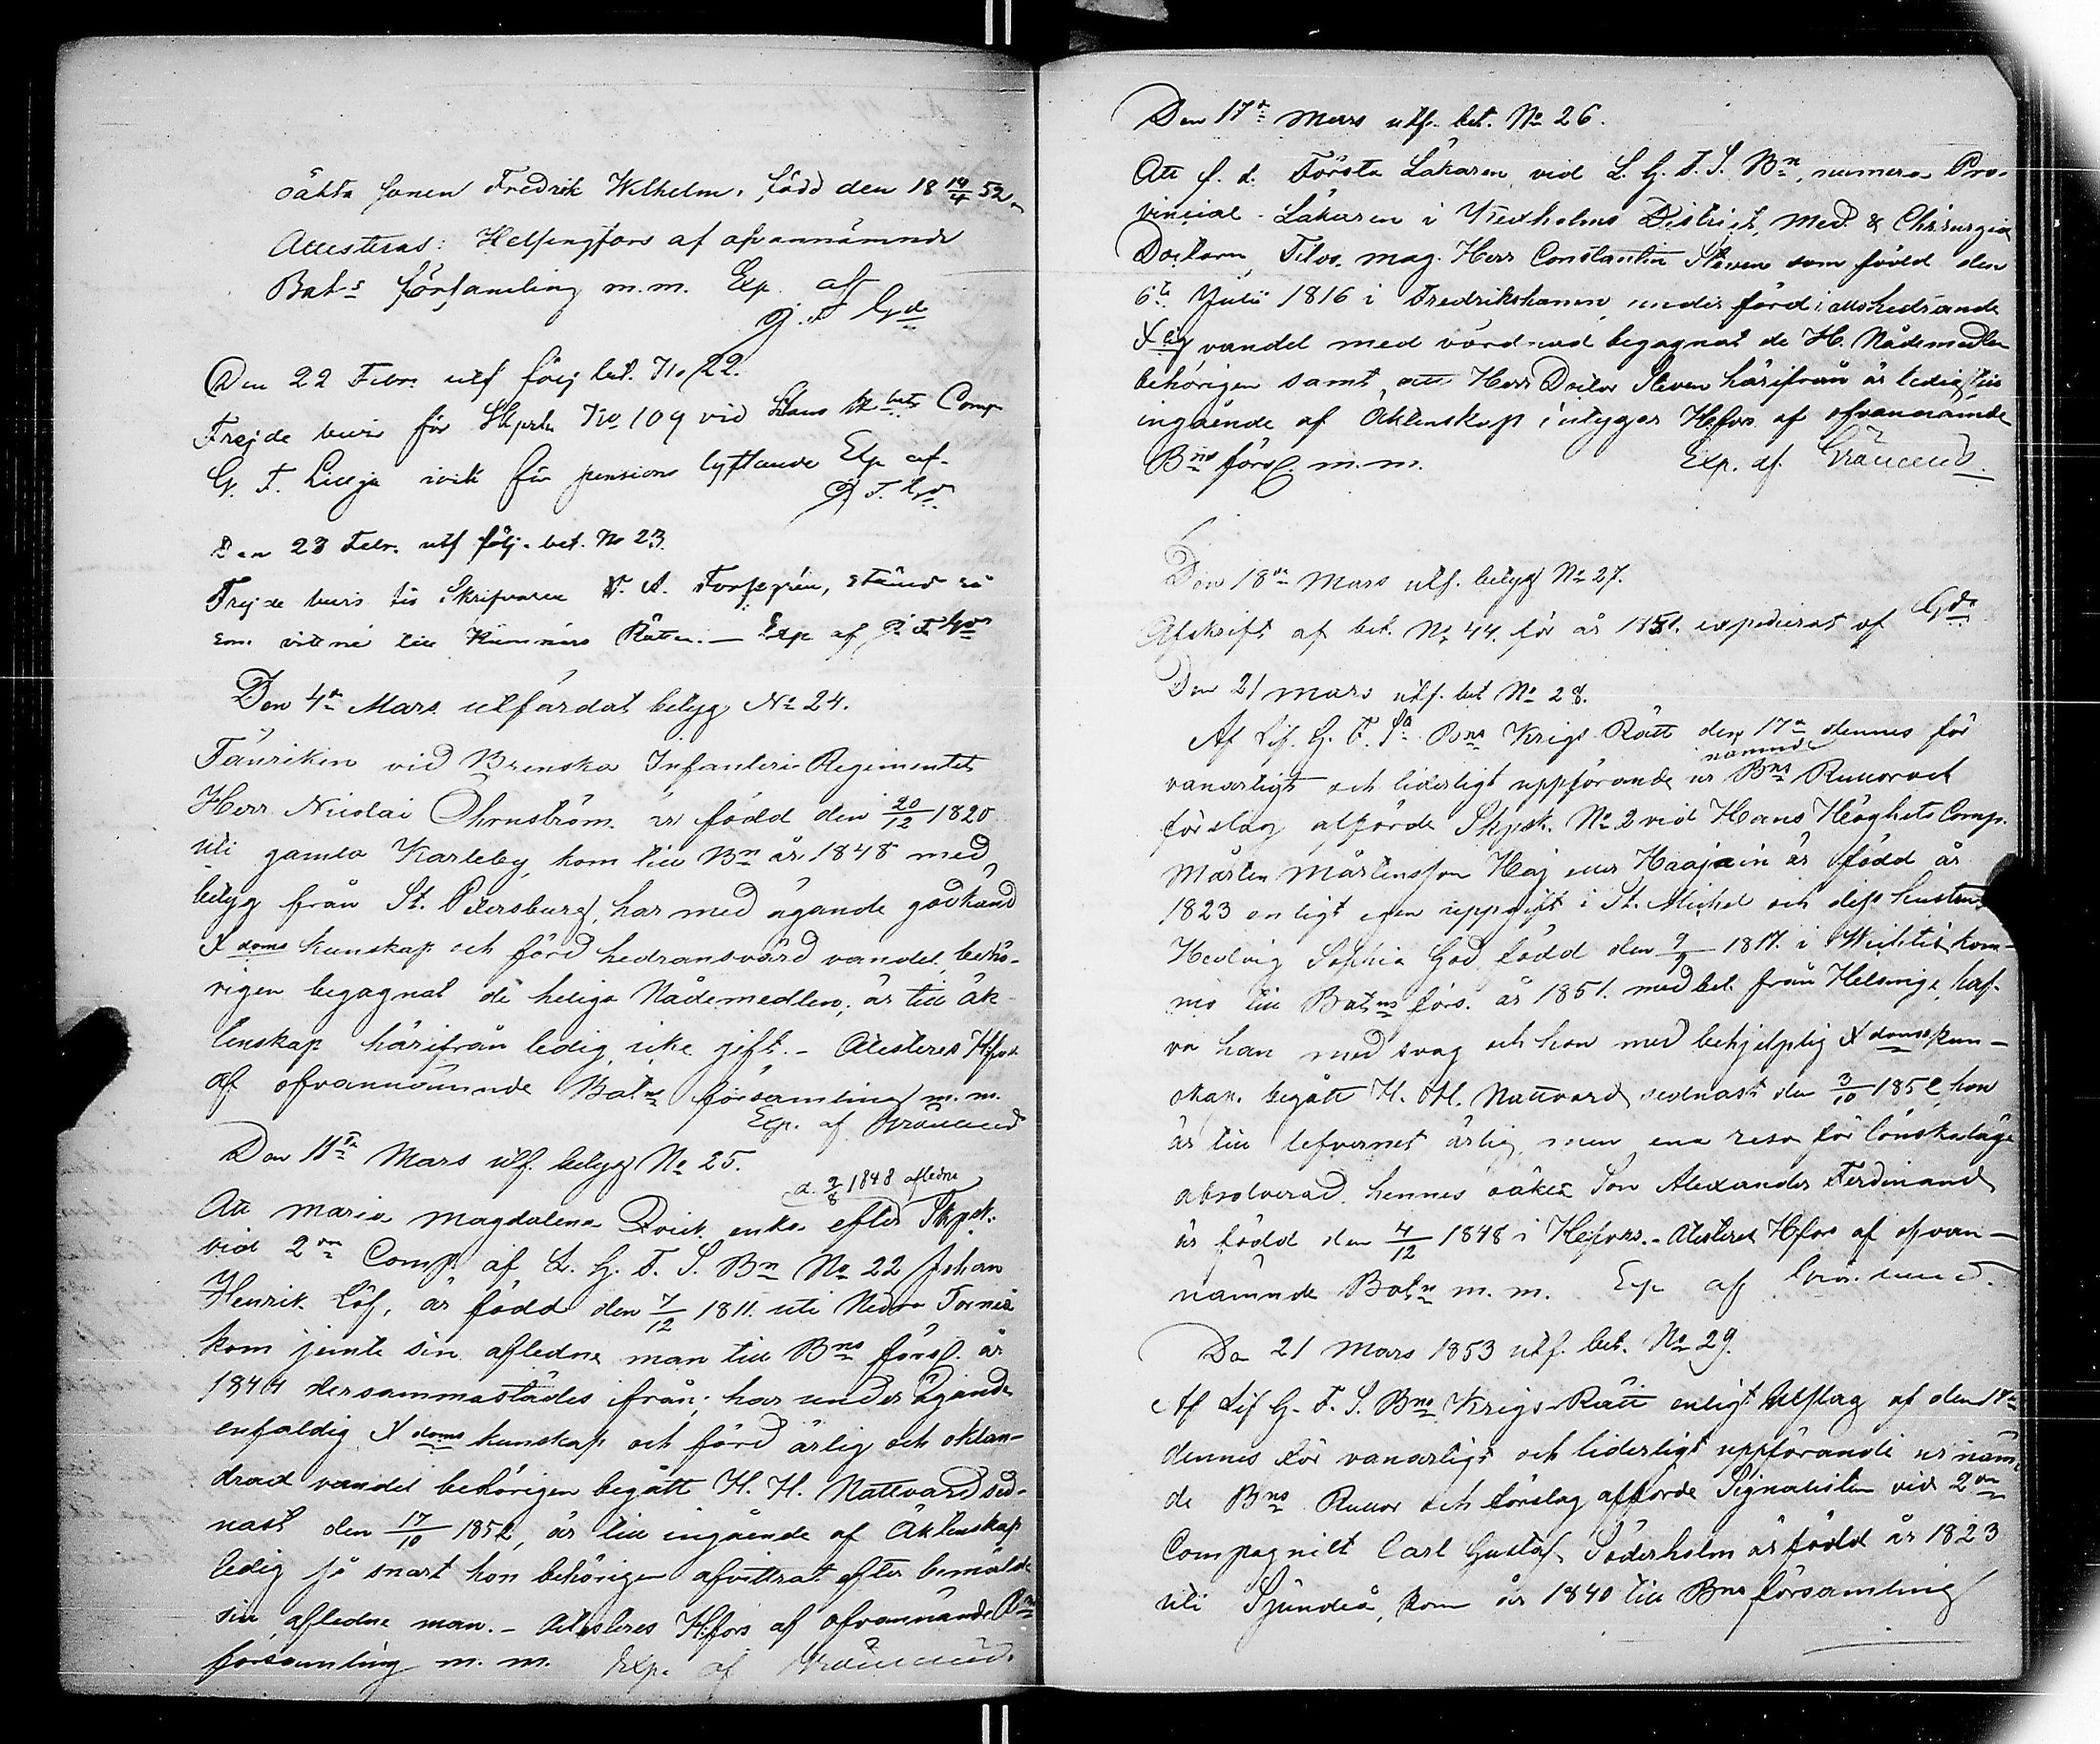 oäkta sonen Fredrik Wilhelm, född den 18 14/4 52.
Attesteras: Helsingfors af ofvannämnde
Bat:s församling m.m. Exp. af
G. F. G:d
Den 22 Febr. utf följ bet. No 22.
Frejde bevis för Skprtn No 109 vid Hans H:hets Comp
G. F. Lilja för pensions lyftande Exp af
G. F. G:d
Den 23 Febr. utf följ. bet. No 23.
Frejde bevis för Skrifvaren F. A. Forsgrén, ställd så
som vittne till Kämnärs Rätten. — Exp af G. F. G:d
Den 4:a Mars utfärdat betyg No 24.
Fänriken vid Brenska Infanteri Regimentet
Herr Nicolai Öhrnström är född den 20/12 1820
uti gamla Karleby, kom till B:n år 1848 med
betyg från St. Petersburg, har med ägande godkänd
X:doms kunskap och förd hedransvärd vandel behö-
rigen begagnat de heliga Nådemedlen; är till äk-
tenskap härifrån ledig, icke gift. - Attesteres H:fors
af ofvannämnde Bat:ns församling m. m.
Exp. af
Den 11:te Mars utf. betyg No 25.
d. 2/8 1848 aflidne
Att Maria Magdalena Qvick enka efter Skpsk.
vid 2:n Comp. af L. G. F. S. B:n No 22 Johan
Henrik Löf, är född den 7/12 1811 uti Nedra Torneå
kom jemte sin afledne man till B:ns förs. år
1844 dersammastädes ifrån; har under ägande
enfaldig X:doms kunskap och förd ärlig och oklan-
drad vandel behörigen begått H. H. Nattvard sed-
nast den 17/10 1852, är till ingående af Äktenskap
ledig så snart hon behörigen afvittrat efter bemälde
sin afledne man. - Attesteres H:fors af ofvannämnde B:ns
församling m. m. Exp. af
Den 17:de Mars utf. bet. No 26.
Att f. d. Förste Läkaren vid L. G. F. S. B:n, numera Pro-
vincial-Läkaren i Kexholms District, Med. & Chirurgiæ
Doctorn, Filos. Mag. Herr Constantin Steven som född den
6:te Julii 1816 i Fredrikshamn, under förd i allo hedrande
X:lig vandel med vördnad begagnat de H. Nådemedlen
behörigen samt att Herr Doctor Steven härifrån är ledig till
ingående af Äktenskap intygges H:fors af ofvannämnde
B:ns förs. m. m. Exp. af
Den 18:de Mars utf. betyg No 27.
Afskrift af bet. No 44. för år 1851. expedierat af G:d
Den 21 Mars utf. bet No 28.
Af Lif. G. F. S. B:ns Krigs Rätt den 17:de dennes för
nämnde
vanartigt och liderligt uppförande ur B:ns Rullor och
förslag afförde Skpsk. No 2 vid Hans Höghets Comp.
Mårten Mårtensson Haj eller Haajain är född år
1823 enligt egen uppgift i St. Michel och dess hustru
Hedvig Sophia God född den 9/9 1817 i Wichtis kom-
mo till Bat:ns förs. år 1851. med bet. från Helsinge, haf-
va han med svag och hon med behjelplig X:doms kun-
skap. begått H. H. Nattvard sednast den 3/10 1852, hon
är till lefvernet ärlig men ena resa för lönskaläge
absolverad. hennes oäkta Son Alexander Ferdinand
är född den 4/12 1848 i H:fors. - Attesteres H:fors af ofvan-
nämnde Bat:n m. m. Exp af
Den 21 Mars 1853 utf. bet. No 29.
Af Lif G. F. S. B:ns Krigs-Rätt enligt Utslag af den 17:de
dennes för vanartigt och liderligt uppförande ur näm-
de B:ns Rullor och förslag afförde Signalisten vid 2:dra
Compagniet Carl Gustaf Söderholm är född år 1823
uti Sjundeå, kom år 1840 till B:ns församling